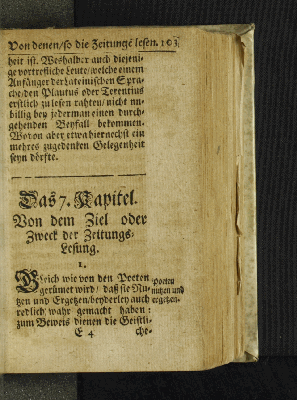 Von denen/so die Zeitungē lesen. 103
heit ist. Weshalber auch diejeni-
ge vortrefliche Leute/welche einem
Anfänger der Lateinischen Spra-
che/den Plautus oder Terentius
erstlich zu lesen rahten/nicht un-
billig bey jederman einen durch-
gehenden Beyfall bekommen.
Wovon aber etwa hiernechst ein
mehres zugedenken Gelegenheit
seyn dörfte.
Das 7. Kapitel.
Von dem Ziel oder
Zweck der Zeitungs-
Lesung.
1.
Gleich wie von den Poeten
gerümet wird/ daß sie Nu-
tzen und Ergetzen/beyderley auch
redlich wahr gemacht haben:
zum Beweis dienen die Geistli-
Poeten
nutzen und
ergetzen.
E 4 che-